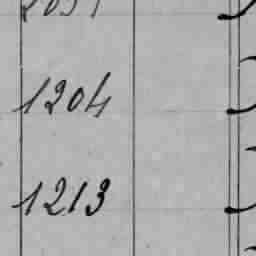 1204
1213